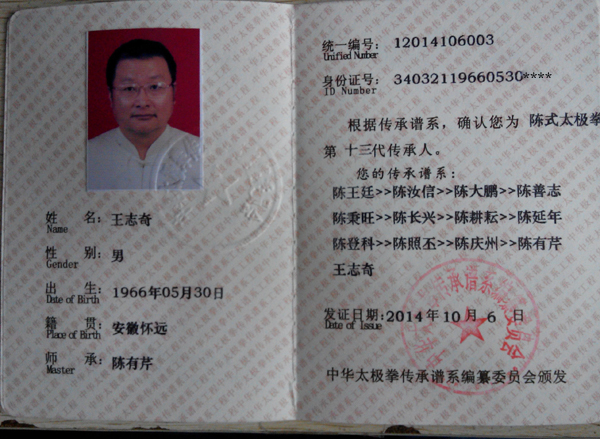 姓 名：王志奇
Name
性 别：男
Gender
出 生：1966年05月30日
Date of Birth
籍 贯：安徽怀远
Place of Birth
师 承：陈有芹
Master
统一编号：12014106003
Unified Number
身份证号：34032119660530****
ID Number
根据传承谱系，确认您为 陈式太极拳
第 十三代传承人。
您的传承谱系：
陈王廷>>陈汝信>>陈大鹏>>陈善志
陈秉旺>>陈长兴>>陈耕耘>>陈延年
陈登科>>陈照丕>>陈庆州>>陈有芹
王志奇
发证日期：2014年10月 6 日
Date of Issue
中华太极拳传承谱系编纂委员会颁发